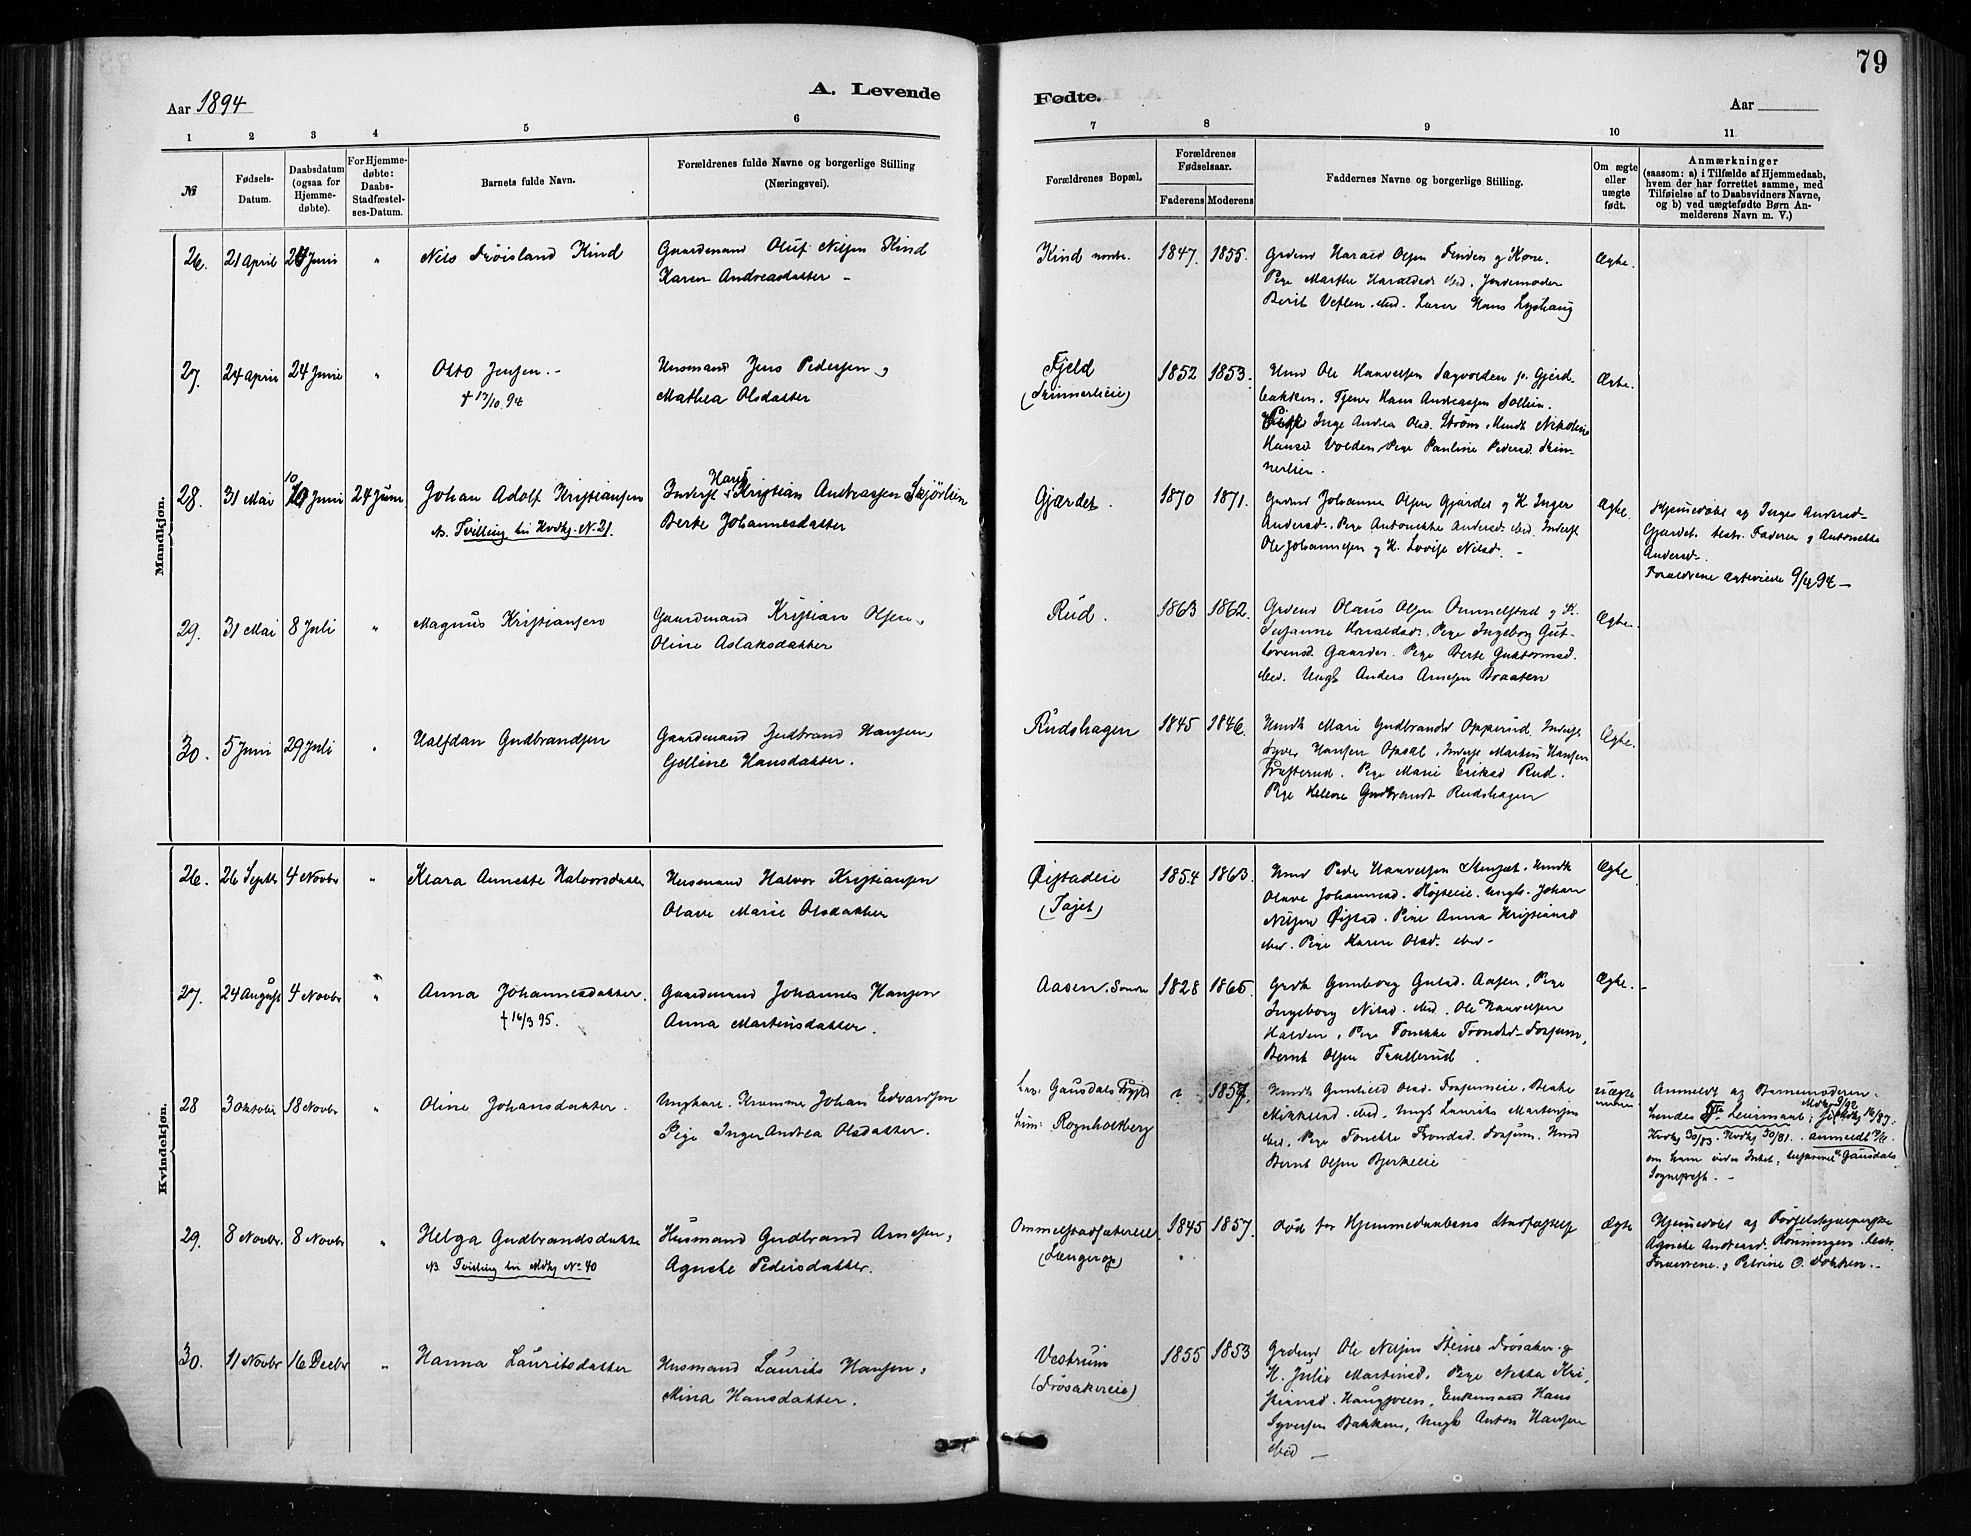 79
Aar 1894
A. Levende
Fødte.
Aar
1 2 3 4 5 6 7 8 9 10 11.
№
Fødsels-Datum.
Daabsdatum (ogsaa for Hjemme-døbte).
For Hjemme-døbte: Daabs-Stadfæstel-ses-Datum.
Barnets fulde Navn.
Forældrenes fulde Navne og borgerlige Stilling (Næringsvei).
Forældrenes Bopæl.
Forældrenes Fødselsaar.
Faderens Moderens
Faddernes Navne og borgerlige Stilling.
Om ægte eller uægte født.
Anmærkninger
(saasom: a) i Tilfælde af Hjemmedaab,
hvem der har forrettet samme, med
Tilføielse af to Daabsvidners Navne,
og b) ved uægtefødte Børn An-
melderens Navn m. V.)
Mandkjøn.
26. 21 April 24 Juni " Nils Fröisland Kind
Gaardmand Oluf Nilsen Kind
Karen Andreasdatter -
Kind nordre. 1847. 1855.
Grdmd Harald Olsen Finden g Kone.
Pige Marthe Haraldsd. ibid. Jordemoder
Berit Veflen. ibid. Lærer Hans Lyshaug
Ægte.
27. 24 April 24 Juni " Otto Jensen. -
Husmand Jens Pedersen,
Mathea Olsdatter
Fjeld
(Skinnerlieie)
1852 1853.
Hmd Ole Haavelsen Sagvolden p. Gjerd-
bakken. Tjener Hans Andreassen Sollien.
Pige Inge Andrea Olsd. Ström, Hmdk Nikoline
Hansd Volden, Pige Pauline Pedersd. Skin-
nerlien.
Ægte.
28. 31 Mai 10 Juni 24 Juni Johan Adolf Kristiansen
NB. Tvilling til Kvdkj. N. 21.
Inderst Hans Kristian Andreassen Skjörlien
Berte Johannesdatter
Gjærdet. 1870 1871.
Grdmd Johannes Olsen Gjærdet g K. Inger
Andersd., Pige Antonette Andersd. ibid. Inderst
Ole Johannesen g K. Lovise Nilsd. -
Ægte.
Hjemmedöbt af Inger Andersd-
Gjærdet. testr. Faderen g Antonette
Andersd-.
Forældrene ægteviede 9/4 94 -
29. 31 Mai 8 Juli " Magnus Kristiansen
Gaardmand Kristian Olsen,
Oline Aslaksdatter
Rud. 1863 1862.
Grdmd Olaus Olsen Ommelstad g K.
Susanne Haraldsd. Pige Ingeborg Gut-
tormsd. Gaarder. Pige Berte Guttormsd.
ibid. Ungk Anders Arnesen Braaten
Ægte.
30. 5 Juni 29 Juli " Halfdan Gudbrandsen
Gaardmand Gudbrand Hansen,
Gelline Hansdatter.
Rudshagen 1845 1846.
Hmdk Mari Gudbrandsd Opperud. Inderst
Syver Hansen Opsal, Inderst Martin Hansen
Pige Marie Eriksd Rud.
Pige Helene Gudbrandsd Rudshagen
Ægte.
Kvindekjøn.
26. 26 Septbr 4 Novbr " Klara Annette Halvorsdatter
Husmand Halvor Kristiansen
Olave Marie Olsdatter
Öistadeie
(Tajet)
1854 1863.
Hmd Peder Haavelsen Stenset. Hmdk
Olave Johannesd. Ungk. Johan
Nilsen Öistad. Pige Anna Kristiansd
ibid. Pige Karen Olsd. ibid -
Ægte.
27. 24 August 4 Novbr " Anna Johannesdatter.
† 16/3 95.
Gaardmand Johannes Hansen
Anna Martensdatter.
Aasen, Söndre 1828 1865.
Grdk Gunborg Gulsd. Aasen, Pige
Ingeborg Nilsd. ibid, Ole Haavelsen
Halden, Pige Tonette Trondsd - Fossum,
Bernt Olsen Trællerud.
Ægte. -
28 3 Oktober 18 Novbr " Oline Johansdatter.
Ungkarl. Kræmmer Johan Edvardsen
Pige Inger Andrea Olsdatter.
Gausdals
Rognholtberg
1857.
Hmdk Gunhild Olsd. Fossumeie. Beate
Mikkelsd. ibid. Ungk Laurits Martensen
ibid, Pige Tonette Trondsd. Fossum, Hmd
Bernt Olsen Bjerkeeie
Anmeldt af Barnemoderen.
hendes Leiermaal
Kvdkj 30/81. anmeldt
om ham vides Intet,
Sognepræst. -
29. 8 Novbr. 8 Novbr " Helga Gudbrandsdatter
NB Tvilling til Mdkj No 40
Husmand Gudbrand Arnesen,
Agnete Pedersdatter.
Ommelstadsætereie
(Længerop)
1845 1857.
död før Hjemmedaabens Stadfæstelse
Ægte
Hjemmedöbt af
Agnethe Andersd. Rönningen. testr.
Forældrene, g Petrine O. Dokken. -
30. 11 Novbr 16 Decbr " Hanna Lauritsdatter
Husmand Laurits Hansen,
Mina Hansdatter.
Vestrum
(Frösakereie)
1855 1853
Grdmd Ole Nilsen Steine Frösaker. g
K. Julie Martinsd. Pige Netta Kri-
stiansd. Haugsveen, Enkemand Hans
Syversen Bakken, Ungk Anton Hansen
ibid -